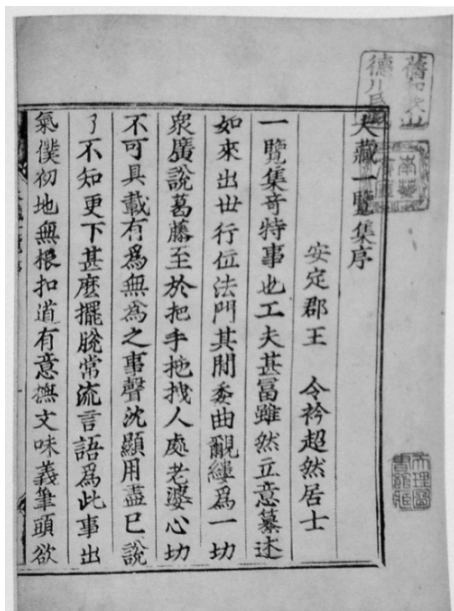 大藏一覽集序
安定郡王 令衿超然居士
一覽集奇特事也工夫甚冨雖然立意纂述
如來出世行位法門其間委曲覼縷爲一切
衆廣說葛藤至於把手拖找人處老婆心切
不可具載有爲無爲之事聲沈顯用盡已說
了不知更下甚麽擺脫常流言語爲此事出
氣僕初地無根扣道有意無文味義筆頭欲